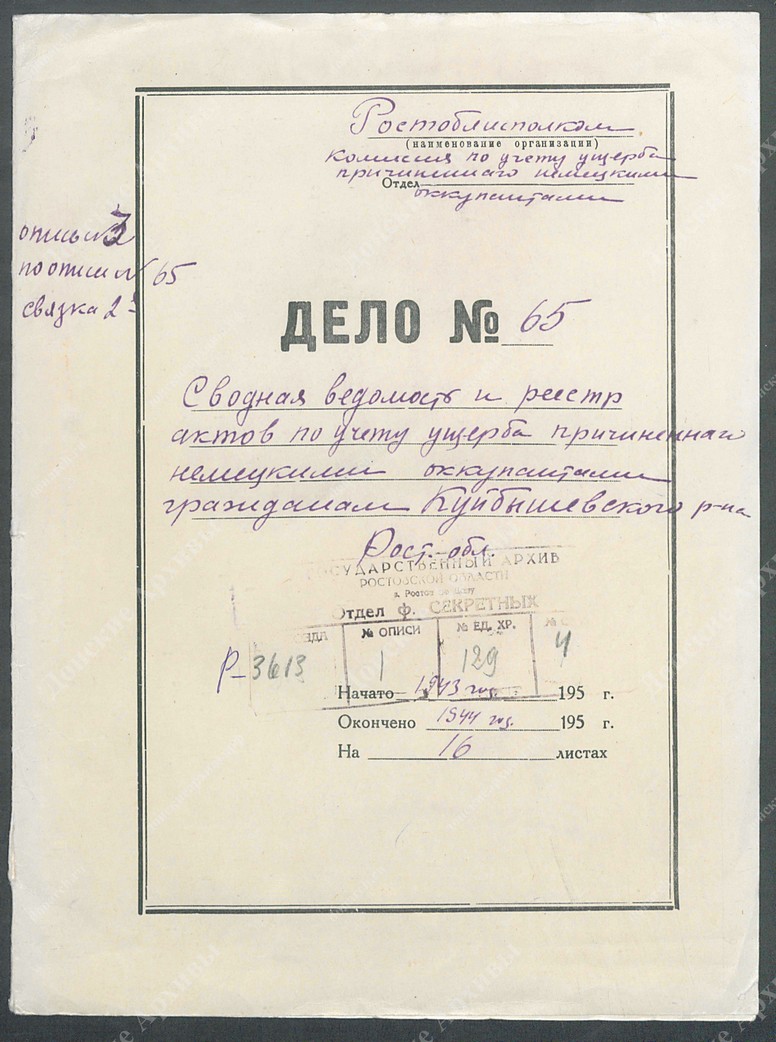 Ростоблисполком
(наименование организации)
комиссия по учету ущерба
причиненнаго немецкими
Отдел
оккупантами
опись № 3
по описи № 65
связка 2
ДЕЛО № 65
Сводная ведомость и реестр
актов по учету ущерба причиненнаго
немецкими оккупантами
гражданам Куйбышевского р-на
Рост. обл.
ГОСУДАРСТВЕННЫЙ АРХИВ
РОСТОВСКОЙ ОБЛАСТИ
г. Ростов
Отдел ф. СЕКРЕТНЫХ
№ ОПИСИ № ЕД. ХР.
Р-3613 1 129 4
Начато 1943 год. 195 г.
Окончено 1944 год. 195 г.
На 16 листах